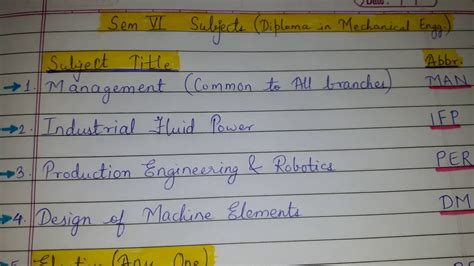 Date: 
Sem VI Subjects (Diploma in Mechanical Engg.)
Subject Title Abbr.
→ 1. Management (Common to All branches) MAN
→ 2. Industrial Fluid Power IFP
→ 3. Production Engineering & Robotics PER
→ 4. Design of Machine Elements DM
5. Elective (Any One)